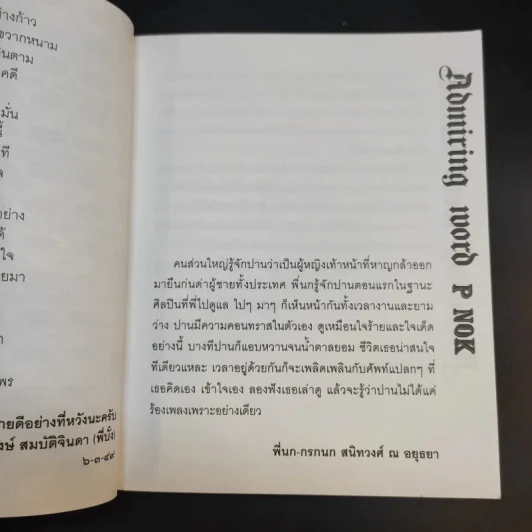 ่างก้าว
ขวากหนาม
ินตาม
คดี
มั่น
ที
อย่าง
ใจ
ยมา
พร
ายดีอย่างที่หวังนะครับ
งษ์ สมบัติจินดา (พี่บั๋ง)
๖-๓-๔๙
Admiring word P NOK
คนส่วนใหญ่รู้จักปานว่าเป็นผู้หญิงเท้าหน้าที่หาญกล้าออก
มายืนก่นด่าผู้ชายทั้งประเทศ พี่นกรู้จักปานตอนแรกในฐานะ
ศิลปินที่พี่ไปดูแล ไปๆ มาๆ ก็เห็นหน้ากันทั้งเวลางานและยาม
ว่าง ปานมีความคอนทราสในตัวเอง ดูเหมือนใจร้ายและใจเด็ด
อย่างนี้ บางทีปานก็แอบหวานจนน้ำตาลยอม ชีวิตเธอน่าสนใจ
ทีเดียวแหละ เวลาอยู่ด้วยกันก็จะเพลิดเพลินกับศัพท์แปลกๆ ที่
เธอคิดเอง เข้าใจเอง ลองฟังเธอเล่าดู แล้วจะรู้ว่าปานไม่ได้แค่
ร้องเพลงเพราะอย่างเดียว
พี่นก-กรกนก สนิทวงศ์ ณ อยุธยา